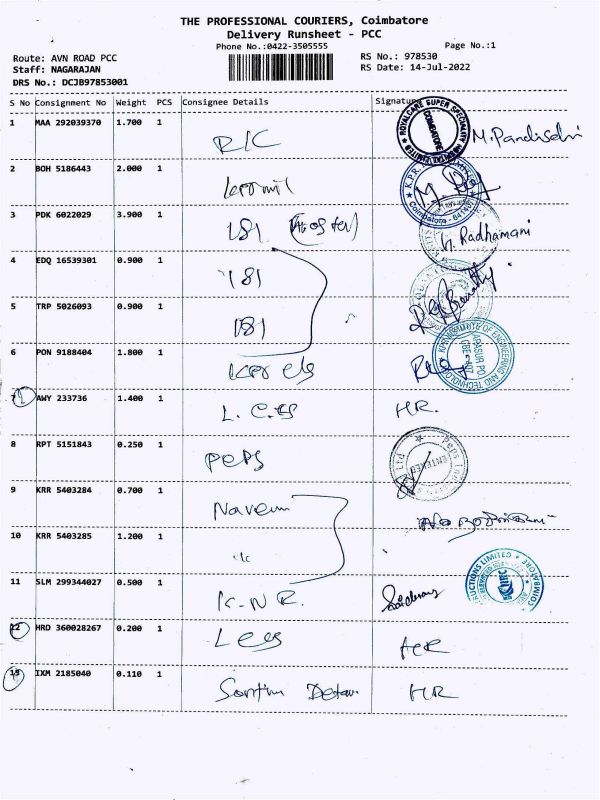 THE PROFESSIONAL COURIERS, Coimbatore
Delivery Runsheet - PCC
Phone No.:0422-3505555
Page No.:1
Route: AVN ROAD PCC
Staff: NAGARAJAN
DRS No.: DCJB97853001
RS No.: 978530
RS Date: 14-Jul-2022
S No Consignment No Weight PCS Consignee Details Signature
1 MAA 292039370 1.700 1 R/C M.Pandiselvi
ROYALCARE SUPER SPECIALITY COIMBATORE
2 BOH 5186443 2.000 1
3 PDK 6022029 3.900 1 181 (Hostel) Radhamani
4 EDQ 16539301 0.900 1 181
5 TRP 5026093 0.900 1 181
6 PON 9188404 1.800 1
INSTITUTE OF ENGINEERING AND TECHNOLOGY
7 AWY 233736 1.400 1 HR.
8 RPT 5151843 0.250 1 Peps
9 KRR 5403284 0.700 1 Naveen
10 KRR 5403285 1.200 1
11 SLM 299344027 0.500 1 K.N.R.
12 HRD 360028267 0.200 1 HR
13 IXM 2185040 0.110 1 HR